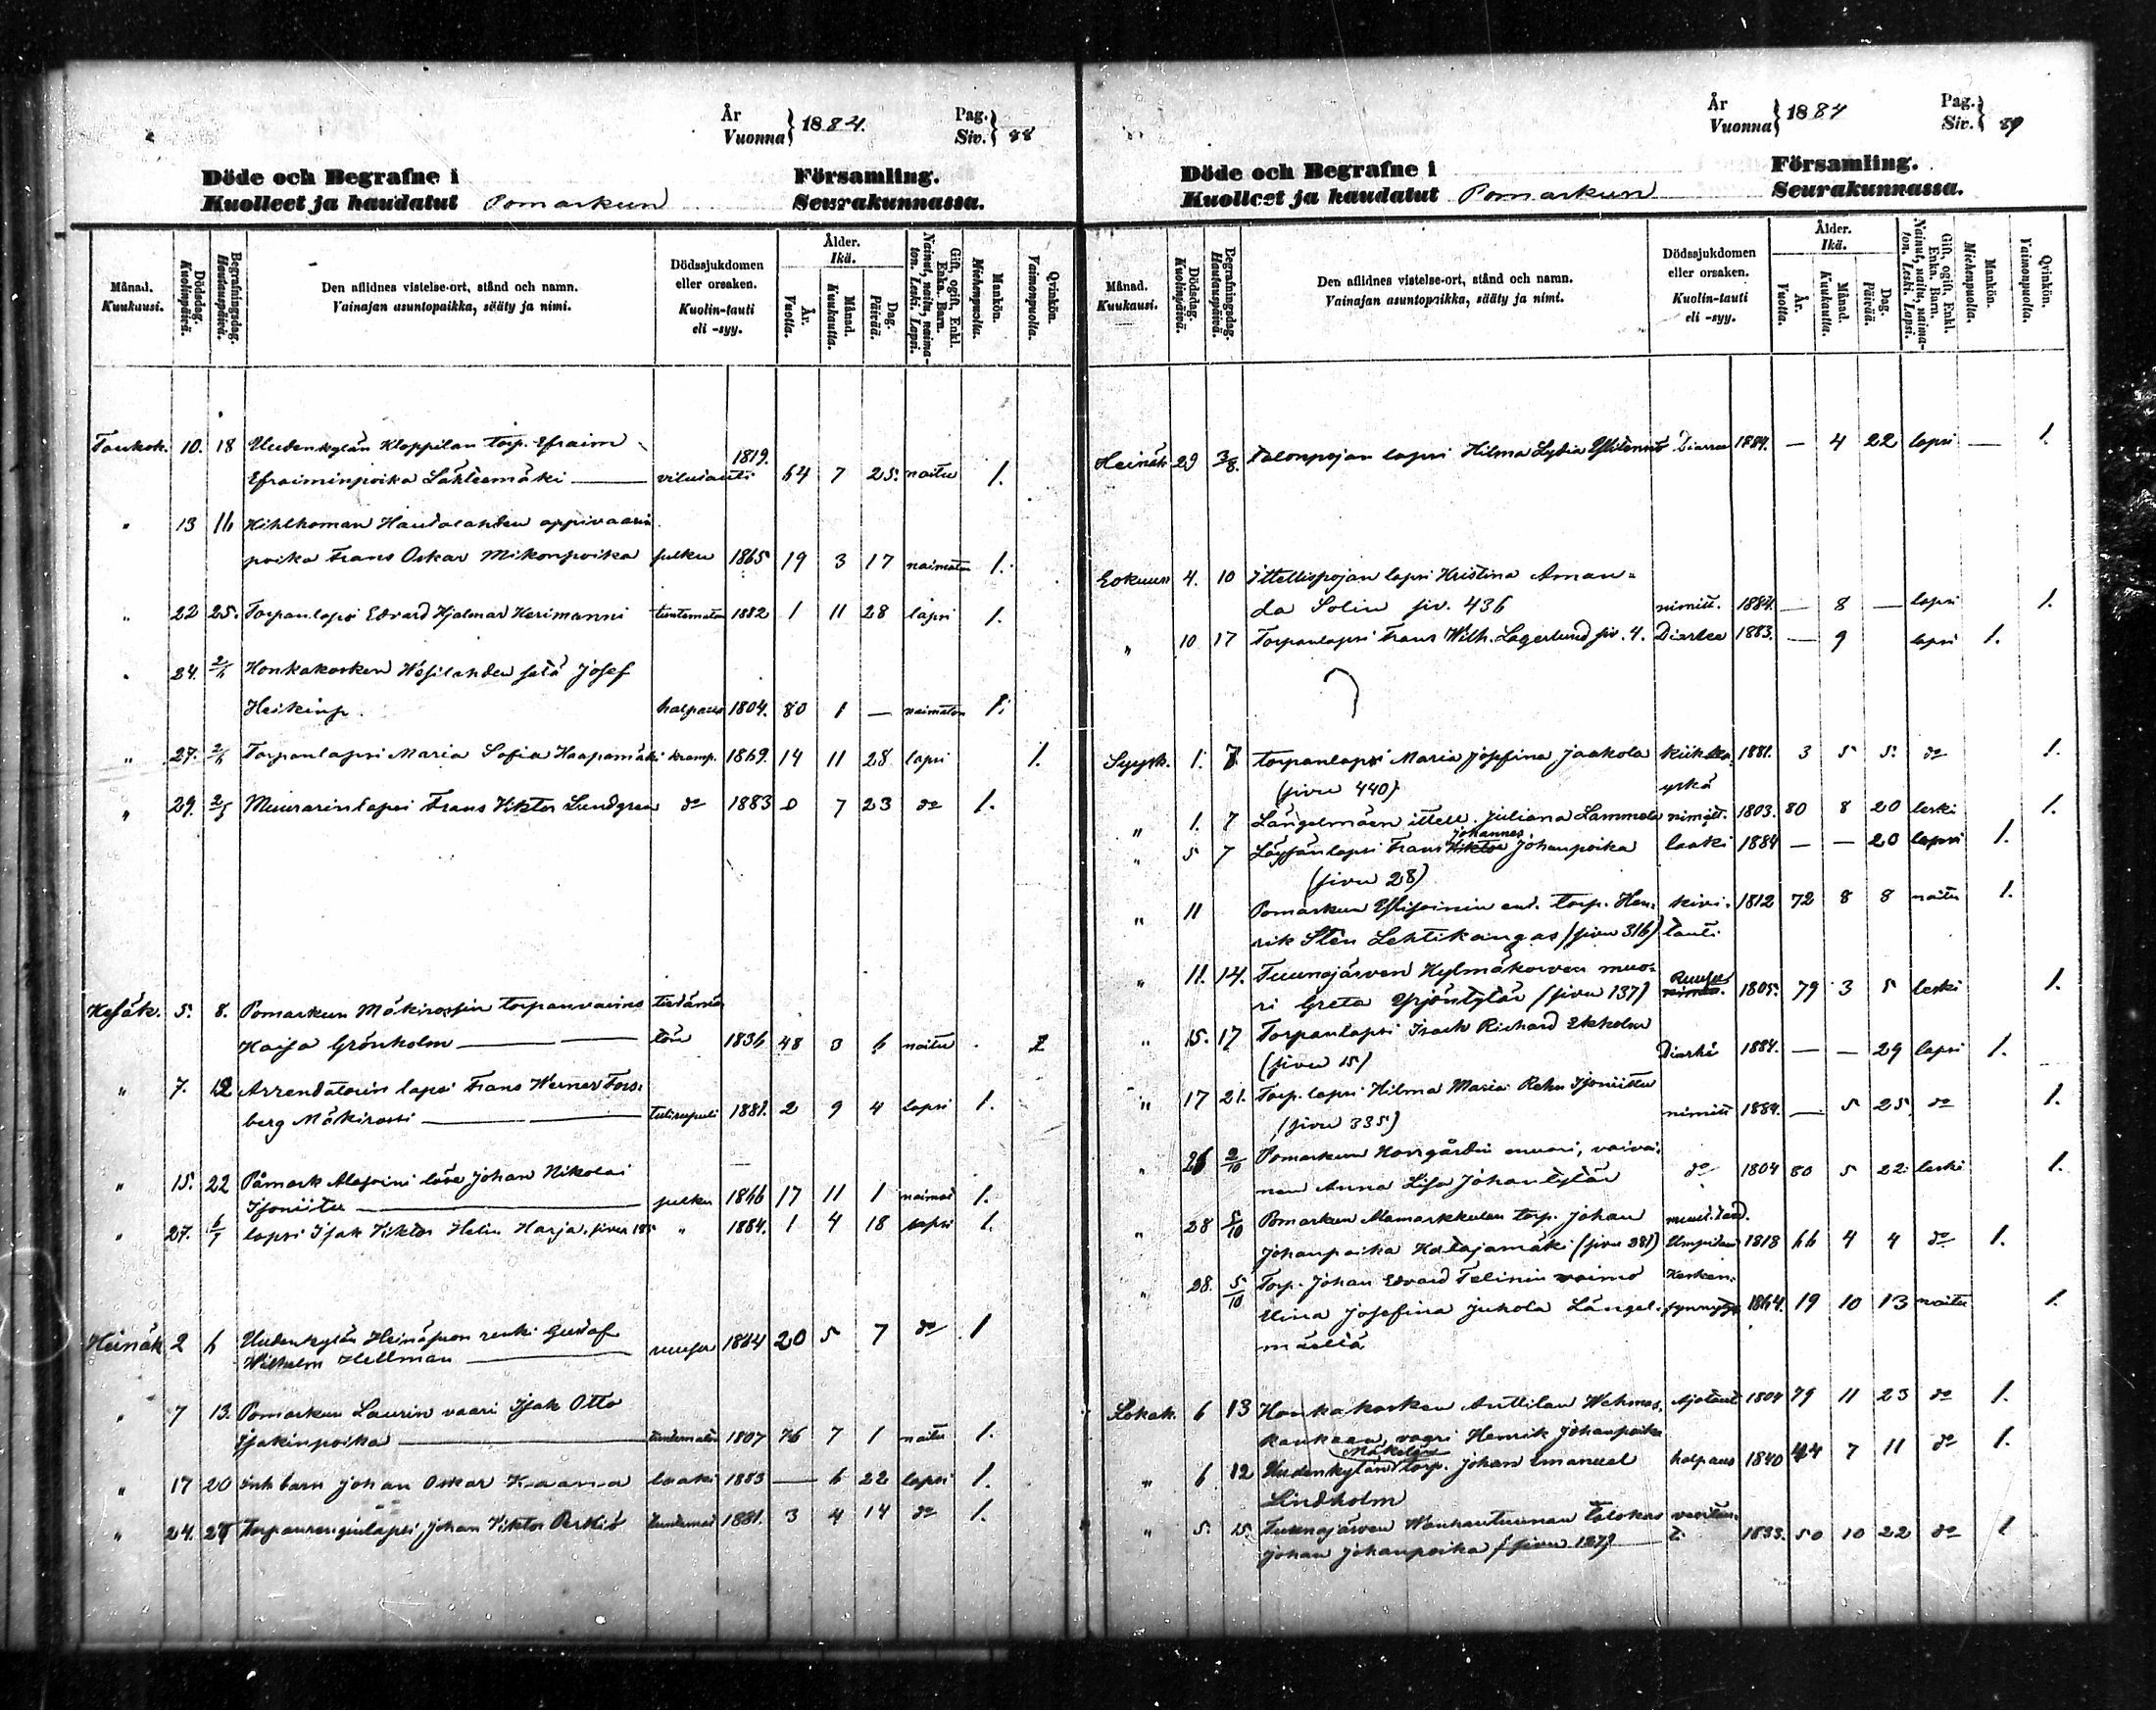 År
Vuonna } 1884.
Pag.
Siv. } 88
Döde och Begrafne i
Församling.
Kuolleet ja haudatut Pomarkun Seurakunnassa.
Månad. Kuukausi.
Dödsdag. Kuolinpäivä.
Begrafningsdag. Hautauspäivä.
Den aflidnes vistelse-ort, stånd och namn.
Vainajan asuntopaikka, sääty ja nimi.
Dödssjukdomen eller orsaken.
Kuolin-tauti eli -syy.
Ålder. Ikä.
År. Vuotta.
Månad. Kuukautta.
Dag. Päivää.
Gift, ogift, Enkl. Enka. Barn.
Nainut, naitu, naimaton. Leski. Lapsi.
Mankön. Miehenpuolta.
Qvinkön. Vaimonpuolta.
Toukok. 10. 18 Uudenkylän Kloppilan torp. Efraim
Efraiminpoika Lähteemäki vilutauti 1819. 64 7 25. naitu 1.
" 13 16 Kihlhoman Haudalahden appivaarin
poika Frans Oskar Mikonpoika julku 1865 19 3 17 naimaton 1.
" 22 25. Torpanlapsi Edvard Hjalmar Herimanni tuntematon 1882 1 11 28 lapsi 1.
" 24. 2/6 Honkakosken Wesilahden setä Josef
Heikinp. halpaus 1804. 80 1 — naimaton 1.
" 27. 2/6 Torpanlapsi Maria Sofia Haapamäki kramp. 1869. 14 11 28 lapsi 1.
" 29. Muurarinlapsi Frans Viktor Lundgren do 1883 0 7 23 do 1.
Kesäk. 5. 8. Pomarkun Mäkirossin torpanvaimo
Kaisa Grönholm 1836 48 3 6 naitu
" 7. 12 Arrendatorin lapsi Frans Werner Fors-
berg Mäkirossi tulirupuli 1881. 2 9 4 lapsi 1.
" 15. 22 Påmark Alasoini Johan Nikolai
Isoniitu julku 1866 17 11 1 1.
" 27. lapsi Isak Viktor Helin Harja, sivu 1884. 1 4 18 lapsi 1.
Heinäk 2 6 Uudenkylän Heinäjoen renki Gustaf
Wilhelm Hellman 1864 20 5 7 do 1
" 7 13. Pomarkun Laurin vaari Isak Otto
Isakinpoika tuntematon 1807 76 7 1 naitu 1.
" 17 20 barn Johan Oskar Kaama laaki 1883 — 6 22 lapsi 1.
" 24. 27 Torpanrenginlapsi Johan Viktor Perkiö tuntemat 1881. 3 4 14 do 1.
År
Vuonna } 1884
Pag.
Siv. } 89
Döde och Begrafne i
Församling.
Kuolleet ja haudatut Pomarkun Seurakunnassa.
Månad. Kuukausi.
Dödsdag. Kuolinpäivä.
Begrafningsdag. Hautauspäivä.
Den aflidnes vistelse-ort, stånd och namn.
Vainajan asuntopaikka, sääty ja nimi.
Dödssjukdomen eller orsaken.
Kuolin-tauti eli -syy.
Ålder. Ikä.
År. Vuotta.
Månad. Kuukautta.
Dag. Päivää.
Gift, ogift, Enkl. Enka. Barn.
Nainut, naitu, naimaton. Leski. Lapsi.
Mankön. Miehenpuolta.
Qvinkön. Vaimonpuolta.
Heinäk 29 3/8. Talonpojan lapsi Hilma Lydia Diarrea 1884. — 4 22 lapsi — 1.
Elokuun 4. 10 Ittellispojan lapsi Kristina Aman-
da Solin siv. 436 nimitt. 1884. — 8 — lapsi 1.
" 10 17 Torpanlapsi Frans Wilh. Lagerlund siv. 4. 1883. — 9 lapsi 1.
Syysk. 1. 7. torpanlapsi Maria Josefina Jaakola 1881. 3 5 5. do 1.
(sivu 440) yskä
" 1. 7 Längelmäen ittell. Juliana Lammela nimitt. 1803. 80 8 20 leski 1.
Johannes
" 5 7 Frans Viktor Johanpoika laaki 1884 — — 20 lapsi 1.
(sivu 28)
" 11 Pomarkun Ylisoinin ent. torp. Hen- kivi- 1812 72 8 8 naitu 1.
rik Stén Lehtikangas (sivu 316) tauti
" 11. 14. Tuunajärven Kylmäkorven muo- Ruusu
ri Greta Yrjöntytär (sivu 137) 1805. 79 3 5 leski 1.
" 15. 17 Torpanlapsi Isack Richard Ekholm
(sivu 15) 1884. — — 29 lapsi 1.
" 17 21. Torp. lapsi Hilma Maria Rehn Isoniittu
(sivu 335) nimitt 1884. — 5 25 do 1.
" 26 2/10 Pomarkun Norrgårdin muori, vaivai-
nen Anna Lisa Johantytär do 1804 80 5 22 leski 1.
" 28 5/10 Pomarkun Mamarkkulan torp. Johan
Johanpoika Katajamäki (sivu 381) 1818 66 4 4 do 1.
" 28. 5/10 Torp. Johan Edvard Felinin vaimo Kesken-
Elina Josefina Juhola Längel- 1864. 19 10 13 naitu 1.
mäeltä
Lokak. 6 13 Honkakosken Anttilan Wehmas- 1804 79 11 23 do 1.
kankaan vaari Henrik Johanpoika
Mäkelän
" 6 12 Uudenkylän torp. Johan Emanuel halpaus 1840 44 7 11 do 1.
Lindholm
" 5. 15. Tuunajärven Wanhantuunan talokas
Johan Johanpoika (sivu 127) 1833. 50 10 22 do 1